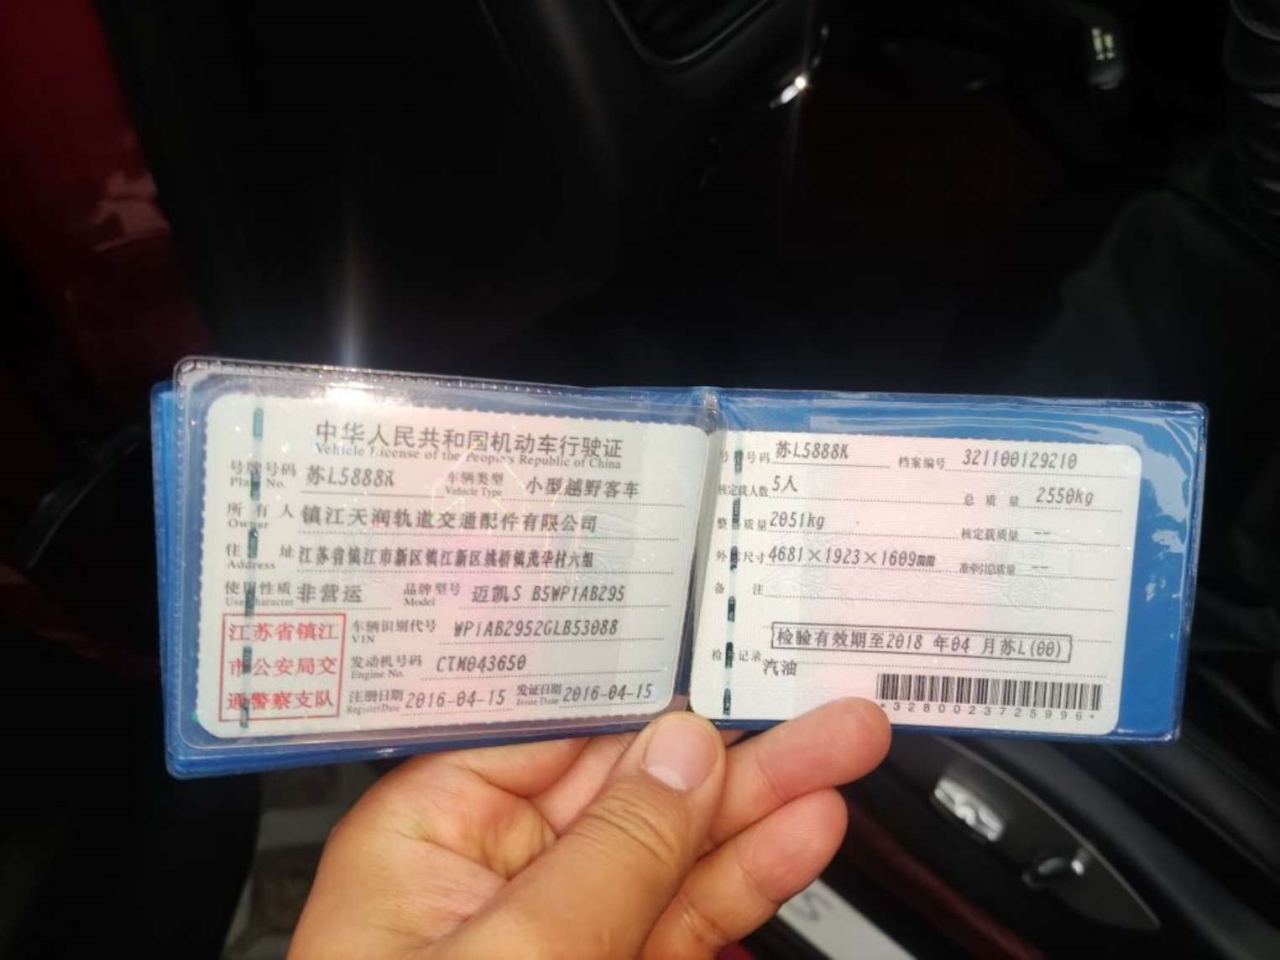 中华人民共和国机动车行驶证
Vehicle License of the People's Republic of China
号牌号码 苏L5888K 车辆类型 小型越野客车
Plate No. Vehicle Type
所有人 镇江天润轨道交通配件有限公司
Owner
住址 江苏省镇江市新区镇江新区姚桥镇茂华村六组
Address
使用性质 非营运 品牌型号 迈凯S B5WP1AB295
Use Character Model
江苏省镇江
市公安局交
通警察支队
车辆识别代号 WP1AB2952GLB53088
VIN
发动机号码 CTM043650
Engine No.
注册日期 2016-04-15 发证日期 2016-04-15
Register Date Issue Date
号 号码 苏L5888K 档案编号 321100129210
核定载人数 5人 总质量 2550kg
整 质量 2051kg 核定载质量 --
外 尺寸 4681×1923×1609 准牵引总质量 --
备注
检验有效期至2018 年04 月苏L(00)
检 记录 汽油
*3280023725996*